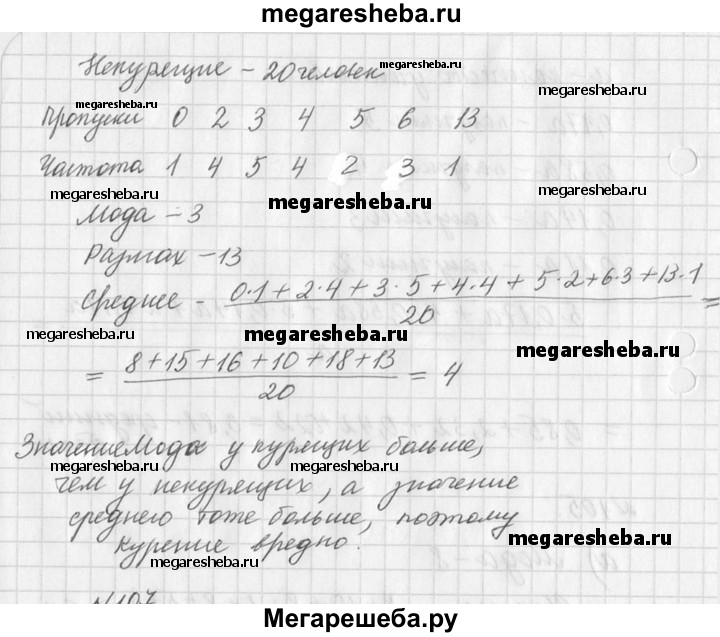 megaresheba.ru
Некурящие - 20 человек megaresheba.ru
megaresheba.ru megaresheba.ru
Пропуски 0 2 3 4 5 6 13
Частота 1 4 5 4 2 3 1
megaresheba.ru megaresheba.ru megaresheba.ru
Мода - 3
Размах - 13
Среднее - 0·1 + 2·4 + 3·5 + 4·4 + 5·2 + 6·3 + 13·1 =
20
megaresheba.ru megaresheba.ru
= 8 + 15 + 16 + 10 + 18 + 13 = 4
20
Значение Мода у курящих больше,
megaresheba.ru megaresheba.ru megaresheba.ru
чем у некурящих, а значение
среднего тоже больше, поэтому
курение вредно.
megaresheba.ru megaresheba.ru
№107
Мегарешеба.ру